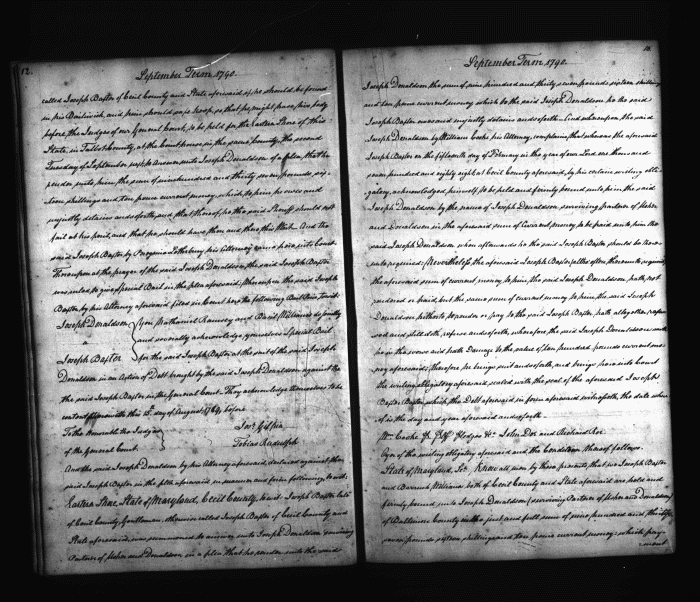 12.
September Term, 1790.
called Joseph Baxter of Cecil County and State aforesaid if he should be found
in his Bailiwick, and him should safe keep, so that he might have his body
before the Judges of our General Court, to be held for the Eastern Shore of this
State, in Talbot County, at the Court house, in the same County, the second
Tuesday of September past, to answer unto Joseph Donaldson of a plea, that he
render unto him, the sum of nine hundred and thirty seven pounds, six-
teen shillings and ten pence current money, which, to him he owes and
unjustly detains and so forth, and that thereof, he the said Sheriff should not
fail at his peril, and that he should have then and there this Writ. And the
said Joseph Baxter by Peregrine Letherbury, his Attorney came here into Court.
Thereupon at the prayer of the said Joseph Donaldson, the said Joseph Baxter
was ruled to give special Bail in the plea aforesaid; thereupon the said Joseph
Baxter, by his Attorney aforesaid filed in Court here the following Bail
Joseph Donaldson You Nathaniel Ramsey and Basil Williams do jointly
a and severally acknowledge yourselves Special Bail
Joseph Baxter for the said Joseph Baxter at the suit of the said Joseph
Donaldson in an Action of Debt brought by the said Joseph Donaldson against the
the said Joseph Baxter in the General Court. They acknowledge themselves to be
content of this 15th day of August 1789, before
To the Honorable the Judges Jos. Gilpin
of the General Court. Tobias Rudulph
And the said Joseph Donaldson, by his Attorney aforesaid, declared against the
said Joseph Baxter in the plea aforesaid, in manner and form following, to wit:
Eastern Shore, State of Maryland, Cecil County, to wit: Joseph Baxter late
of Cecil County, Gentleman, otherwise called Joseph Baxter of Cecil County and
State aforesaid, was summoned to answer unto Joseph Donaldson surviving
Partner of Fisher and Donaldson in a plea that he render unto the said
September Term 1790.
Joseph Donaldson the sum of nine hundred and thirty seven pounds sixteen shillings
and ten pence current money which to the said Joseph Donaldson he the said
Joseph Baxter owes and unjustly detains and so forth. And whereupon, the said
Joseph Donaldson by William Cooke his Attorney, complains, that whereas the aforesaid
Joseph Baxter on the fifteenth day of February in the year of our Lord one thousand
seven hundred and eighty eight at Cecil County aforesaid, by his certain writing obli-
gatory, acknowledged himself, to be held and firmly bound unto him, the said
Joseph Donaldson by the name of Joseph Donaldson surviving partner of Fisher
and Donaldson in the aforesaid sum of current money to be paid unto him the
said Joseph Donaldson when afterwards he the said Joseph Baxter should be there-
unto required: Nevertheless, the aforesaid Joseph Baxter altho often thereunto required
the aforesaid sum of current money to him, the said Joseph Donaldson, hath not
rendered or paid, but the same sum of current money to him, the said Joseph
Donaldson hitherto to render or pay, to the said Joseph Baxter hath altogether refu-
sed and still doth refuse and so forth, wherefore the said Joseph Donaldson saith
he is the worse and hath Damage to the value of ten hundred pounds current mo-
ney aforesaid, therefore, he brings suit and so forth, and brings here into Court
the writing obligatory aforesaid sealed with the seal of the aforesaid Joseph
Baxter, which, the Debt aforesaid in form aforesaid witnesseth, the date where-
of is the day and year aforesaid and so forth
Wm. Cooke for Pltff. Pledges &c. John Doe and Richard Roe.
Oyer of the writing obligatory aforesaid and the Condition thereof follows.
State of Maryland, Sc. Know all men by these presents that we Joseph Baxter
and Williams both of Cecil County and State aforesaid are held and
firmly bound unto Joseph Donaldson (surviving Partner of Fisher and Donaldson)
of Baltimore County in the just and full sum of nine hundred and thirty
seven pounds sixteen shillings and ten pence current money, which pay-
ment